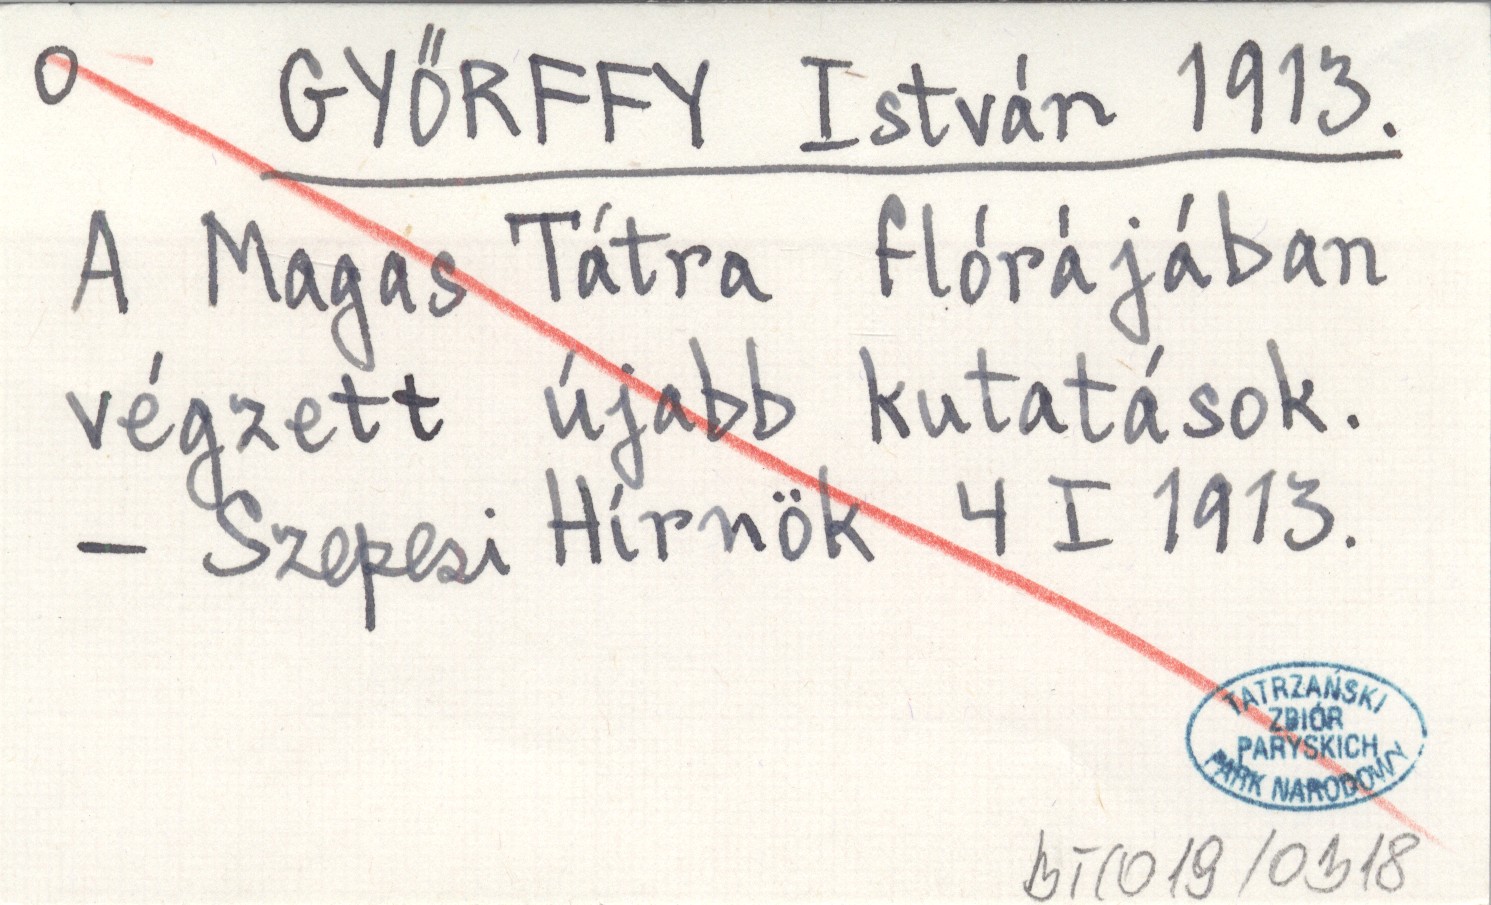 O GYŐRFFY István 1913.
A Magas Tátra flórájában
végzett újabb kutatások.
– Szepesi Hírnök 4 I 1913.
TATRZAŃSKI
ZBIÓR
PARYSKICH
PARK NARODOWY
BTC019/0318